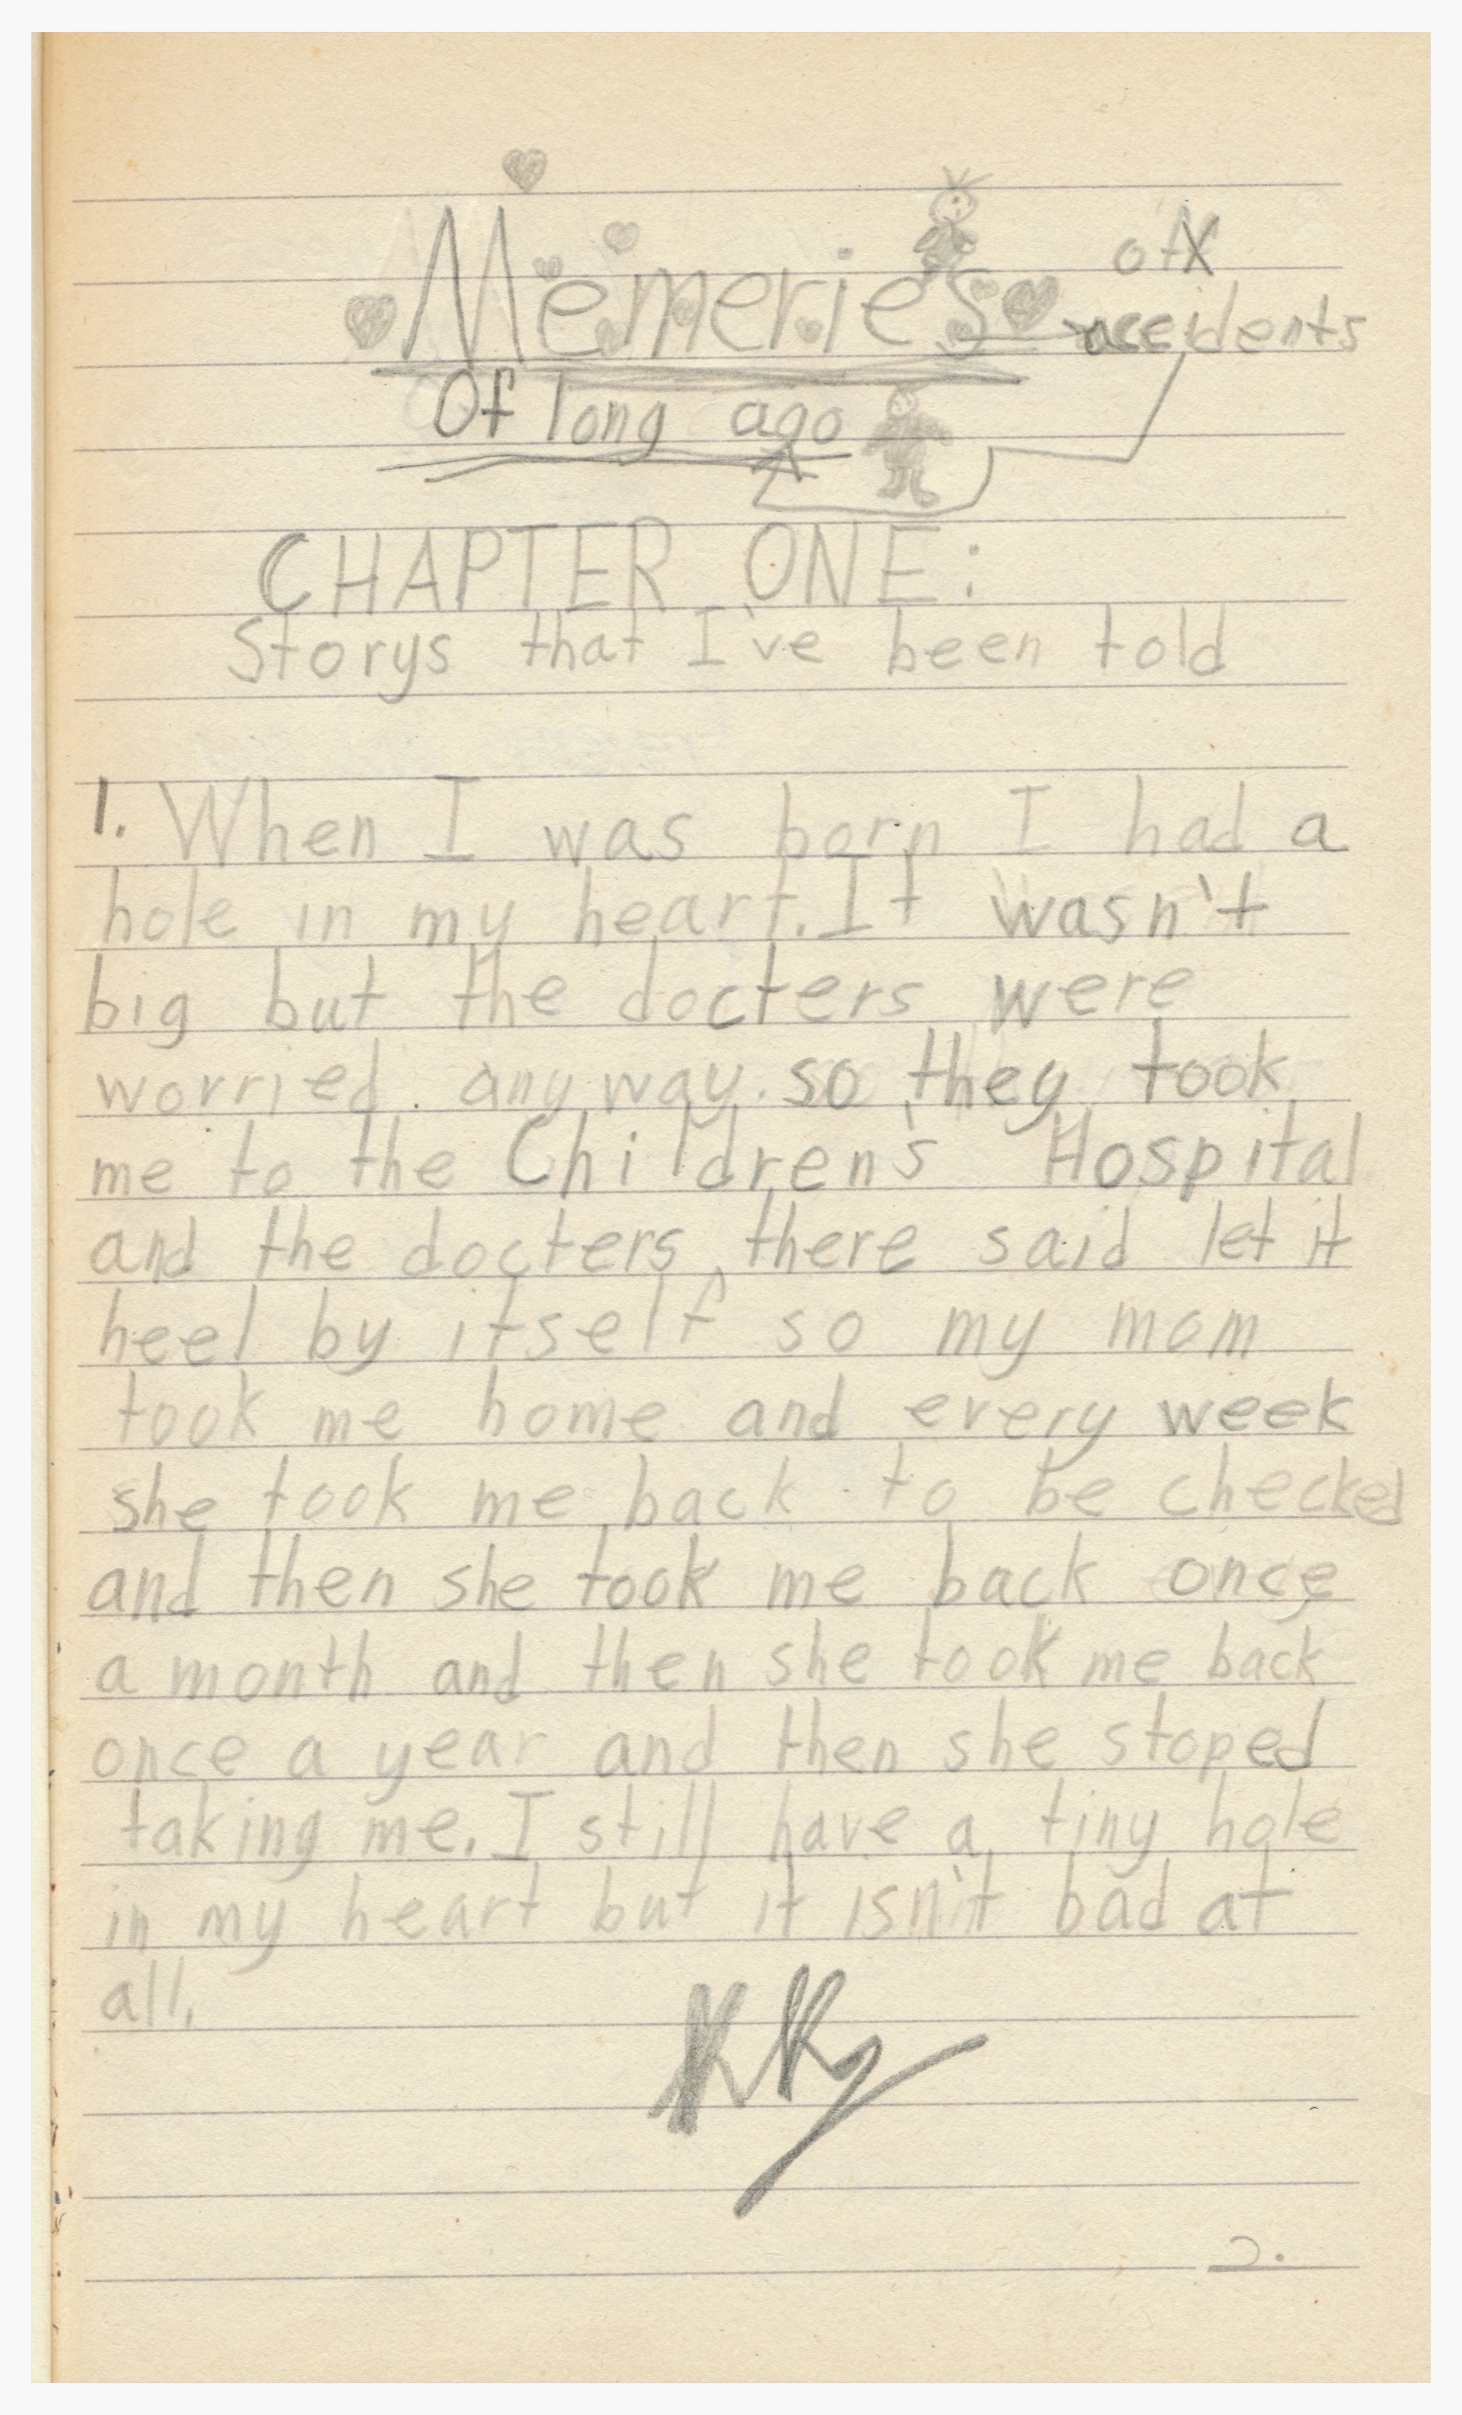 Memeries
of
accidents
Of long ago
CHAPTER ONE:
Storys that I've been told
1. When I was born I had a
hole in my heart. It wasn't
big but the docters were
worried anyway. so they took
me to the Children's Hospital
and the docters there said let it
heel by itself so my mom
took me home and every week
she took me back to be checked
and then she took me back once
a month and then she took me back
once a year and then she stoped
taking me. I still have a tiny hole
in my heart but it isn't bad at
all.
2.